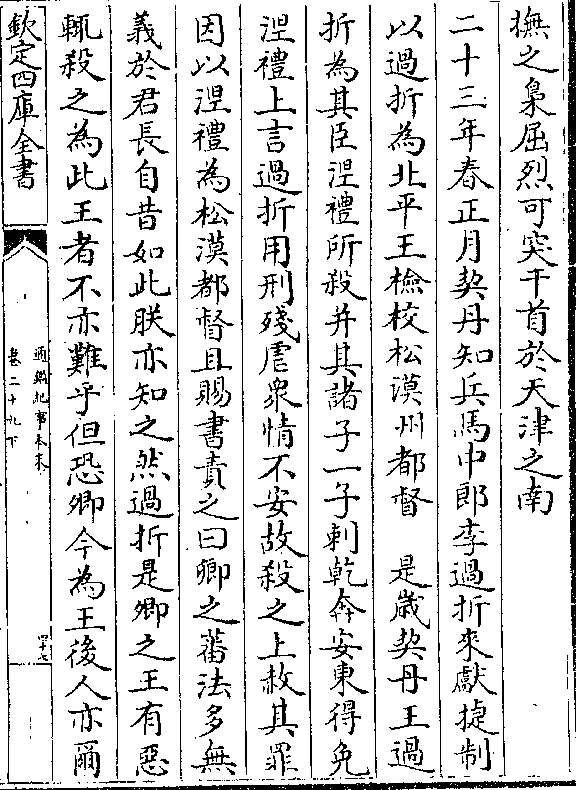 撫之梟屈烈可突干首於天津之南
二十三年春正月契丹知兵馬中郎李過折來獻捷制
以過折為北平王檢校松漠州都督　是歲契丹王過
折為其臣涅禮所殺并其諸子一子剌乾奔安東得免
涅禮上言過折用刑殘虐衆情不安故殺之上赦其罪
因以涅禮為松漠都督且賜書責之曰卿之蕃法多無
義於君長自昔如此朕亦知之然過折是卿之王有惡
輒殺之為此王者不亦難乎但恐卿今為王後人亦爾
欽定四庫全書
通鑑紀事本末
卷二十九下
四十七